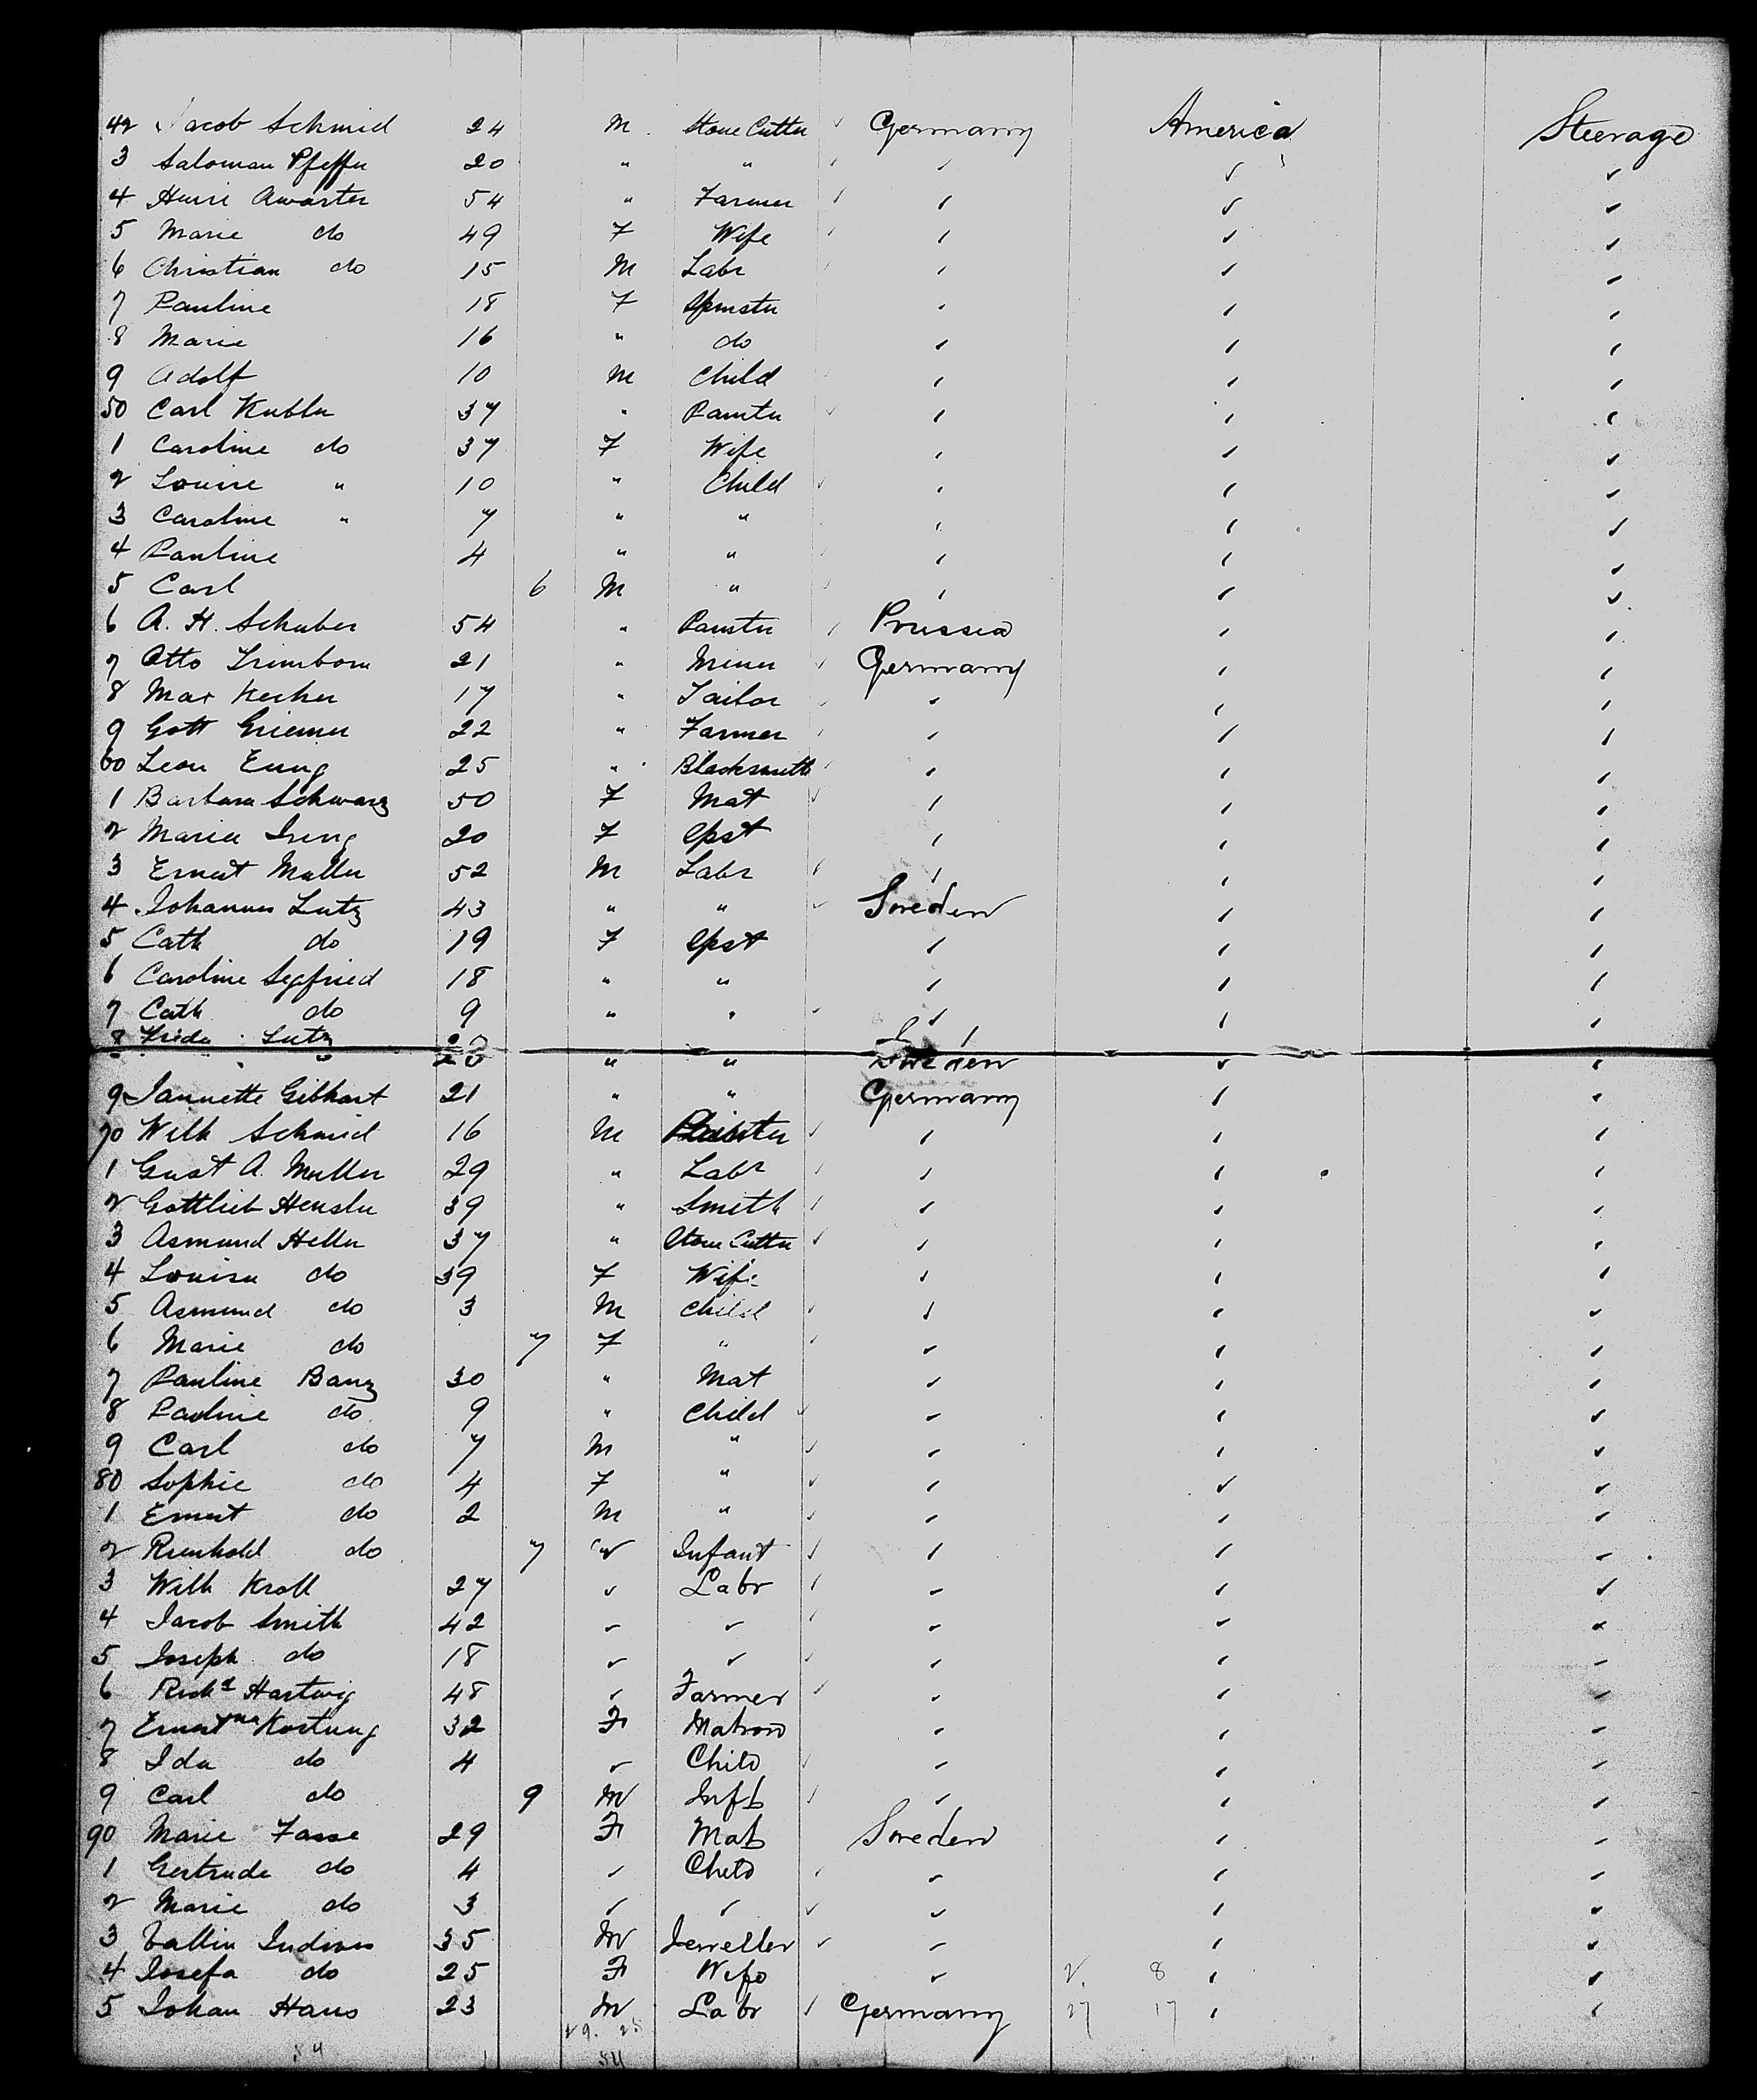 42 Jacob Schmid 24 M. Stone Cutter ✓ Germany America Steerage
3 Saloman Pfeffer 20 " "
4 Henri Awarter 54 " Farmer
5 Marie do 49 F Wife
6 Christian do 15 M Labr
7 Pauline 18 F Spinster
8 Marie 16 " do
9 Adolf 10 M Child
50 Carl Kubler 37 " Painter
1 Caroline do 37 F Wife
2 Louise " 10 " Child
3 Caroline " 7 " "
4 Pauline 4 " "
5 Carl 6 M "
6 A. H. Schuber 54 " Painter Prussia
7 Otto Trimborn 21 " Miner Germany
8 Max Kecher 17 " Tailor
9 Gott Griemer 22 " Farmer
60 Leon Eung 25 " Blacksmith
1 Barbara Schwarz 50 F Mat
2 Maria Ireng 20 F Spst
3 Ernest Muller 52 M Labr
4 Johannes Lutz 43 " " Sweden
5 Cath do 19 F Spst
6 Caroline Segfried 18 " "
7 Cath do 9 " "
8 Frida Lutz 20 " " Sweden
9 Jannette Gibhart 21 " " Germany
70 Wilh Schmid 16 M Painter
1 Gust A. Muller 29 " Labr
2 Gottlieb Hensler 39 " Smith
3 Asmund Heller 37 " Stone Cutter
4 Louisa do 39 F Wife
5 Asmund do 3 M Child
6 Marie do 7 F "
7 Pauline Banz 30 " Mat
8 Pauline do 9 " Child
9 Carl do 7 M "
80 Sophie do 4 F "
1 Ernest do 2 M "
2 Rienhold do 7 " Infant
3 Wilh Kroll 27 ✓ Labr
4 Jacob Smith 42 ✓ ✓
5 Joseph do 18 ✓ ✓
6 Richd Hartwig 48 ✓ Farmer
7 Ernestna Kortung 32 F Matron
8 Ida do 4 ✓ Child
9 Carl do 9 M Inft
90 Marie Fasse 29 F Mat Sweden
1 Gertrude do 4 ✓ Child
2 Marie do 3 ✓ ✓
3 Vallin Indivis 35 M Jeweller
4 Josefa do 25 F Wife 2. 8
5 Johan Hans 23 M Labr Germany 27 17
29. 25
54 54